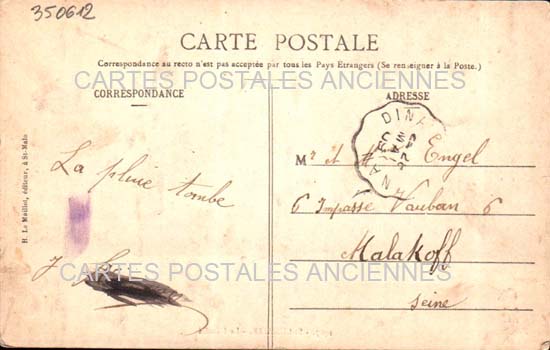 350612
CARTE POSTALE
Correspondance au recto n'est pas acceptée par tous les Pays Etrangers (Se renseigner à la Poste.)
CARTES POSTALES ANCIENNES
CORRESPONDANCE
ADRESSE
DINA
La pluie tombe
Mr et M Engel
6 Impasse Vauban 6
Malakoff
Seine
H. Le Maillot, éditeur, à St-Malo
CARTES POSTALES ANCIENNES